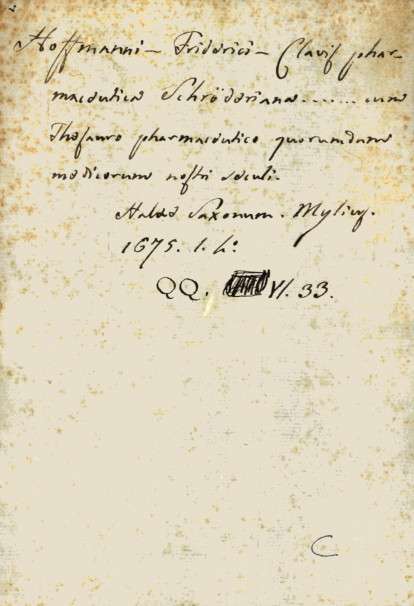 Hoffmanni - Friderici - Clavis phar-
maceutica Schröderiana ........ cum
Thesauro pharmaceutico quorumdam
medicorum nostri seculi.
Halae Saxonum. Mylius.
1675. 1. 4o
QQ. VI. 33.
C